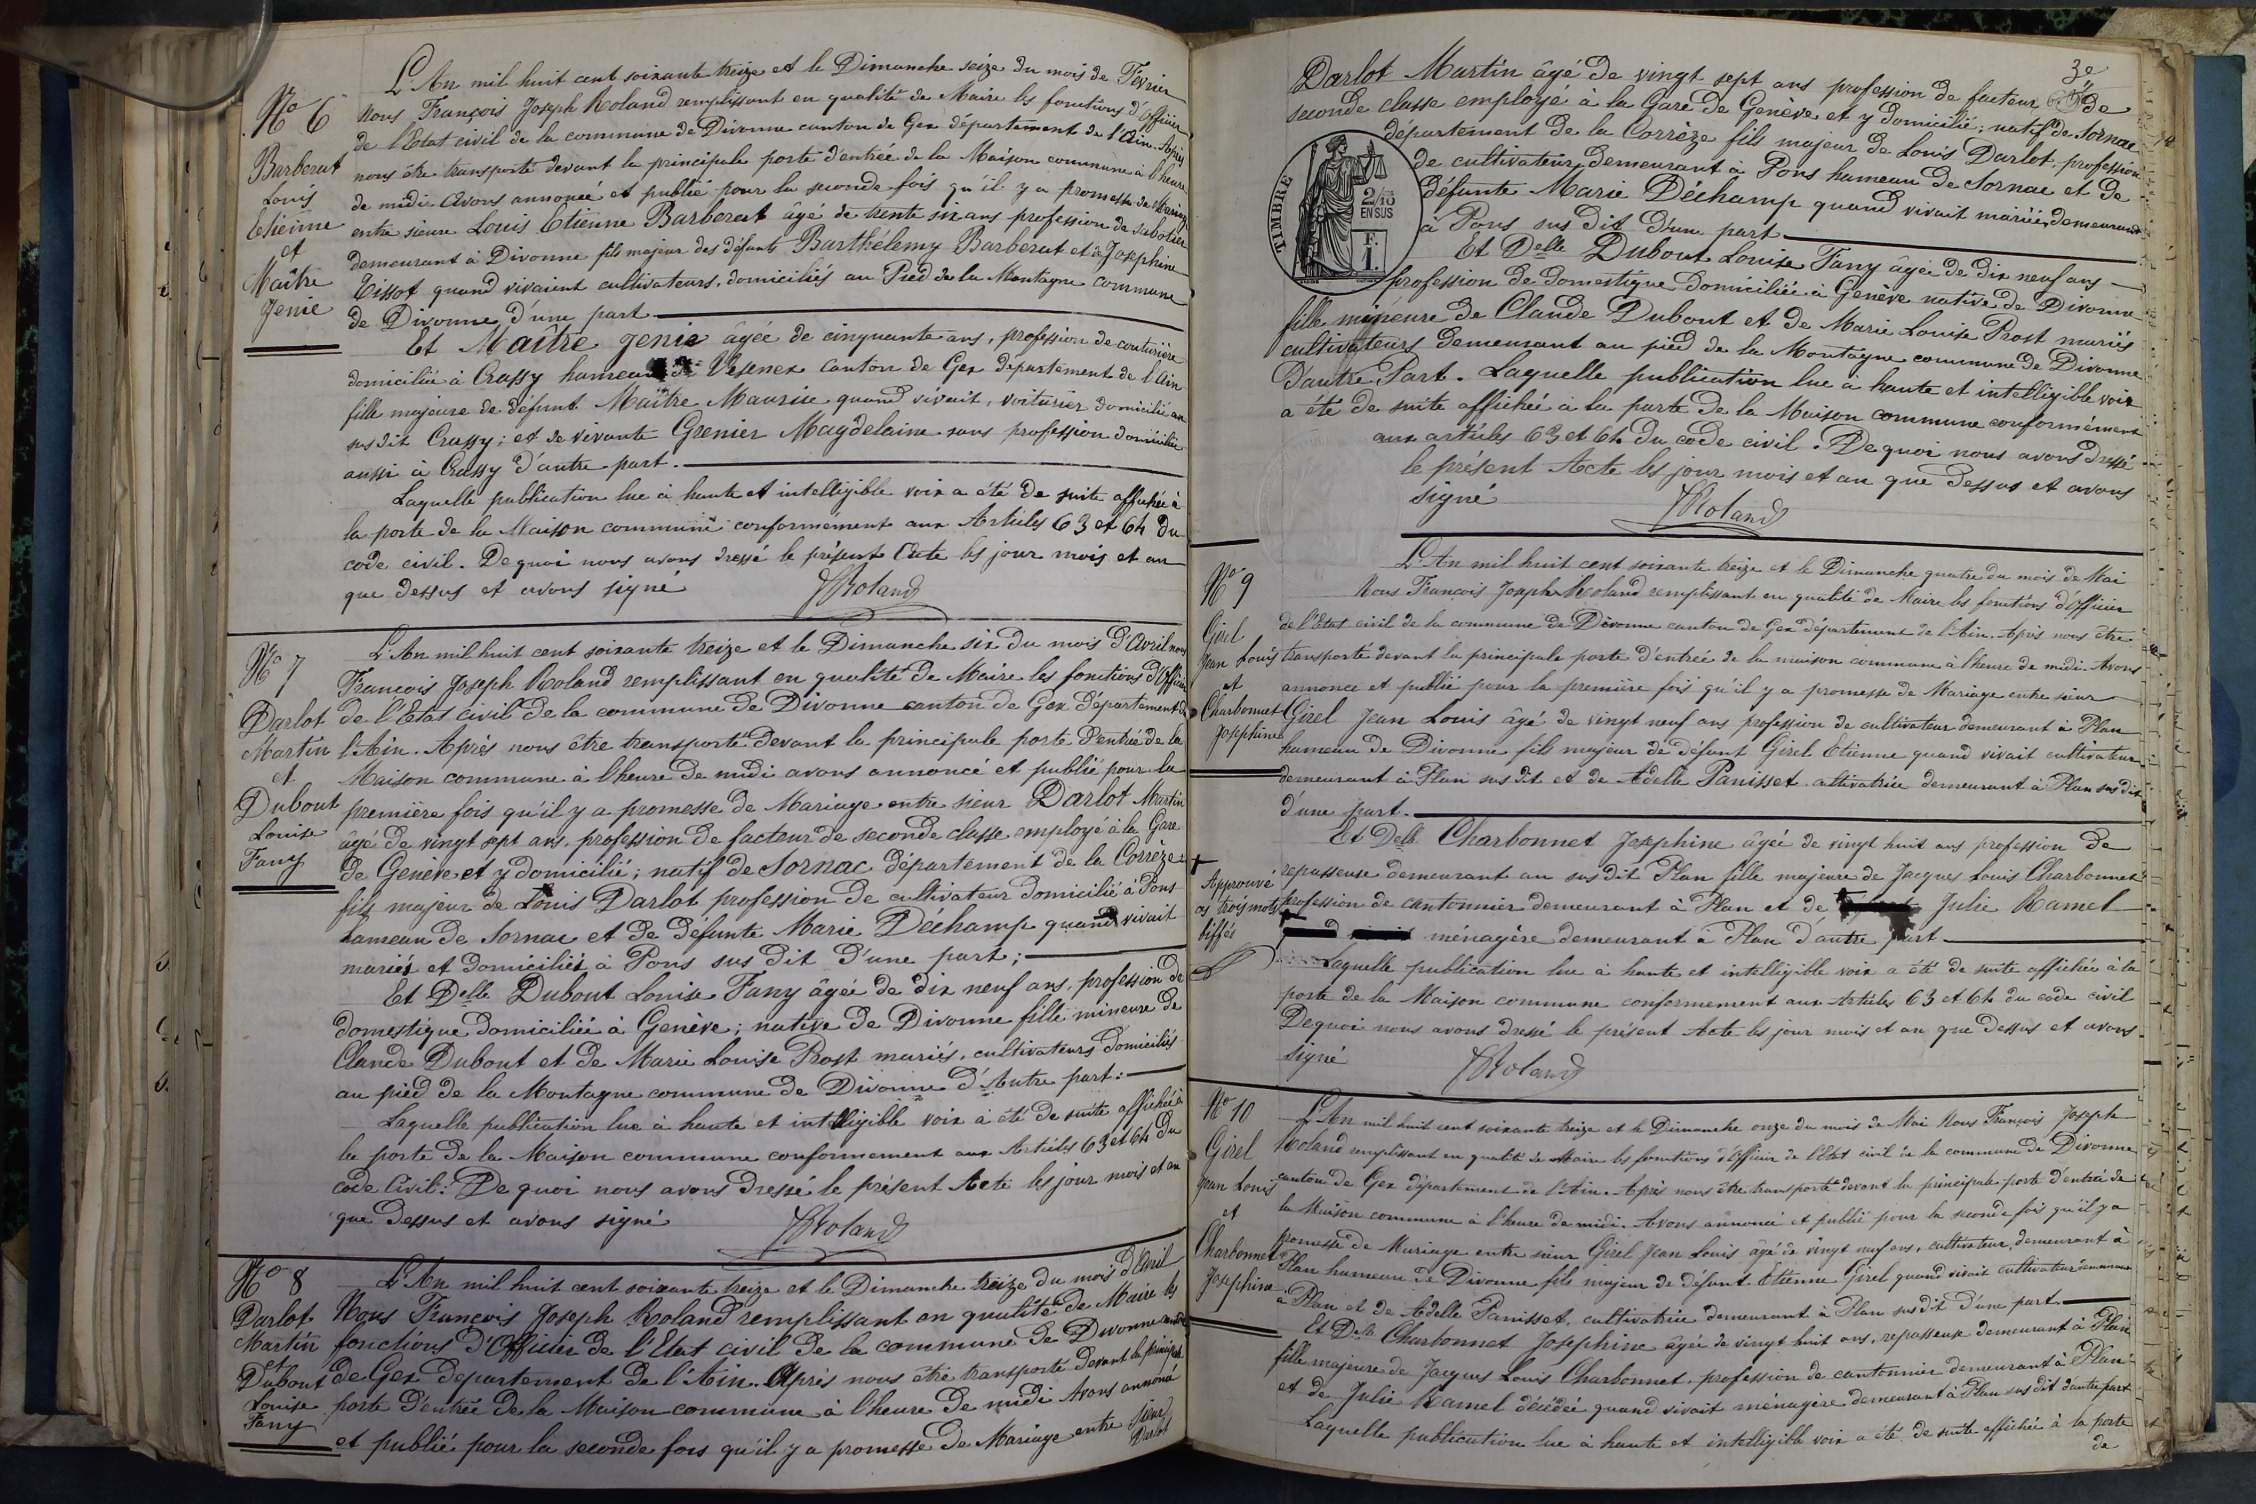 No 6
Barberat
Louis
Etienne
et
Maître
Jenie
L'An mil huit cent soixante treize et le Dimanche seize du mois de Février
Nous François Joseph Roland remplissant en qualité de Maire les fonctions d'Officier
de l'Etat civil de la commune de Divonne canton de Gex département de l'Ain. Après
nous être transporté devant la principale porte d'entrée de la Maison commune à l'heure
de midi Avons annoncé et publié pour la seconde fois qu'il y a promesse de Mariage
entre sieur Louis Etienne Barberat âgé de trente six ans profession de sabotier
demeurant à Divonne fils majeur des défunts Barthélemy Barberat et de Josephine
Tissot quand vivaient cultivateurs, domiciliés au Pied de la Montagne commune
de Divonne d'une part
Et Maître Jenie âgée de cinquante ans, profession de couturière
domiciliée à Crassy hameau de Vesenex canton de Gex département de l'Ain
fille majeure de défunt Maître Maurice quand vivait, voiturier domicilié au
sus dit Crassy; et de vivante Grenier Magdelaine sans profession domiciliée
aussi à Crassy d'autre part.
Laquelle publication lue à haute et intelligible voix a été de suite affichée à
la porte de la Maison commune conformément aux Articles 63 et 64 du
code civil. De quoi nous avons dressé le présent Acte les jour mois et an
que dessus et avons signé
FRoland
No 7
Darlot
Martin
et
Dubout
Louise
Fany
L'An mil huit cent soixante treize et le Dimanche six du mois d'Avril nous
François Joseph Roland remplissant en qualité de Maire les fonctions d'Officier
de l'Etat civil de la commune de Divonne canton de Gex département de
l'Ain. Après nous être transporté devant la principale porte d'entrée de la
Maison commune à l'heure de midi avons annoncé et publié pour la
première fois qu'il y a promesse de Mariage entre sieur Darlot Martin
âgé de vingt sept ans, profession de facteur de seconde classe employé à la Gare
de Genève et y domicilié; natif de Sornac département de la Corrèze
fils majeur de Louis Darlot profession de cultivateur domicilié à Pons
hameau de Sornac et de défunte Marie Déchamp quand vivait
mariés et domiciliés à Pons sus dit d'une part;
Et Delle Dubout Louise Fany âgée de dix neuf ans, profession de
domestique domiciliée à Genève; native de Divonne fille mineure de
Claude Dubout et de Marie Louise Prost mariés, cultivateurs domiciliés
au pied de la Montagne commune de Divonne d'Autre part:
Laquelle publication lue à haute et intelligible voix à été de suite affichée à
la porte de la Maison commune conformement aux Articles 63 et 64 du
code Civil: De quoi nous avons dressé le présent Acte les jour mois et an
que dessus et avons signé
FRoland
No 8
Darlot
Martin
et
Dubout
Louise
Fany
L'An mil huit cent soixante treize et le Dimanche treize du mois d'Avril
Nous François Joseph Roland remplissant en qualité de Maire les
fonctions d'Officier de l'Etat civil de la commune de Divonne canton
de Gex département de l'Ain. Après nous être transporté devant la principale
porte d'entrée de la Maison commune à l'heure de midi Avons annoncé
et publié pour la seconde fois qu'il y a promesse de Mariage entre sieur
Darlot
3e
Darlot Martin âgé de vingt sept ans profession de facteur de
seconde classe employé à la Gare de Genève et y domicilié; natif de Sornac
département de la Corrèze fils majeur de Louis Darlot, profession
de cultivateur demeurant à Pons hameau de Sornac et de
défunte Marie Déchamp quand vivait mariée, demeurant
à Pons sus dit d'une part
TIMBRE
2/10
EN SUS
F.
1.
Et Delle Dubout Louise Fany âgée de dix neuf ans
profession de domestique domiciliée à Genève native de Divonne
fille mineure de Claude Dubout et de Marie Louise Prost mariés
cultivateurs demeurant au pied de la Montagne commune de Divonne
D'autre Part. Laquelle publication lue à haute et intelligible voix
a été de suite affichée à la porte de la Maison commune conformément
aux articles 63 et 64 du code civil. De quoi nous avons dressé
le présent Acte les jour mois et an que dessus et avons
signé
FRoland
No 9
Girel
Jean Louis
et
Charbonnet
Josephine
L'An mil huit cent soixante treize et le Dimanche quatre du mois de Mai
Nous François Joseph Roland remplissant en qualité de Maire les fonctions d'Officier
de l'Etat civil de la commune de Divonne canton de Gex département de l'Ain. Après nous être
transporté devant la principale porte d'entrée de la maison commune à l'heure de midi. Avons
annoncé et publié pour la première fois qu'il y a promesse de Mariage entre sieur
Girel Jean Louis âgé de vingt neuf ans profession de cultivateur demeurant à Plan
hameau de Divonne fils majeur de défunt Girel Etienne quand vivait cultivateur
demeurant à Plan sus dit et de Adelle Panisset cultivatrice demeurant à Plan sus dit
d'une part.
Et Delle Charbonnet Josephine âgée de vingt huit ans profession de
repasseuse demeurant au sus dit Plan fille majeure de Jacques Louis Charbonnet
profession de cantonnier demeurant à Plan et de Julie Ramel
ménagère demeurant à Plan d'autre part
Approuvé
trois mots
biffés
Laquelle publication lue à haute et intelligible voix a été de suite affichée à la
porte de la Maison commune conformement aux Articles 63 et 64 du code civil
De quoi nous avons dressé le présent Acte les jour mois et an que dessus et avons
signé
FRoland
No 10
Girel
Jean Louis
et
Charbonnet
Josephine
L'An mil huit cent soixante treize et le Dimanche onze du mois de Mai Nous François Joseph
Roland remplissant en qualité de Maire les fonctions d'Officier de l'Etat civil de la commune de Divonne
canton de Gex département de l'Ain. Après nous être transporté devant la principale porte d'entrée de
la Maison commune à l'heure de midi. Avons annoncé et publié pour la seconde fois qu'il y a
promesse de Mariage entre sieur Girel Jean Louis âgé de vingt neuf ans, cultivateur, demeurant à
Plan hameau de Divonne fils majeur de défunt Etienne Girel quand vivait cultivateur demeurant
à Plan et de Adelle Panisset, cultivatrice demeurant à Plan sus dit d'une part.
Et Delle Charbonnet Josephine âgée de vingt huit ans, repasseuse demeurant à Plan
fille majeure de Jacques Louis Charbonnet, profession de cantonnier demeurant à Plan
et de Julie Ramel décédée quand vivait ménagère demeurant à Plan sus dit d'autre part
Laquelle publication lue à haute et intelligible voix a été de suite affichée à la porte
de